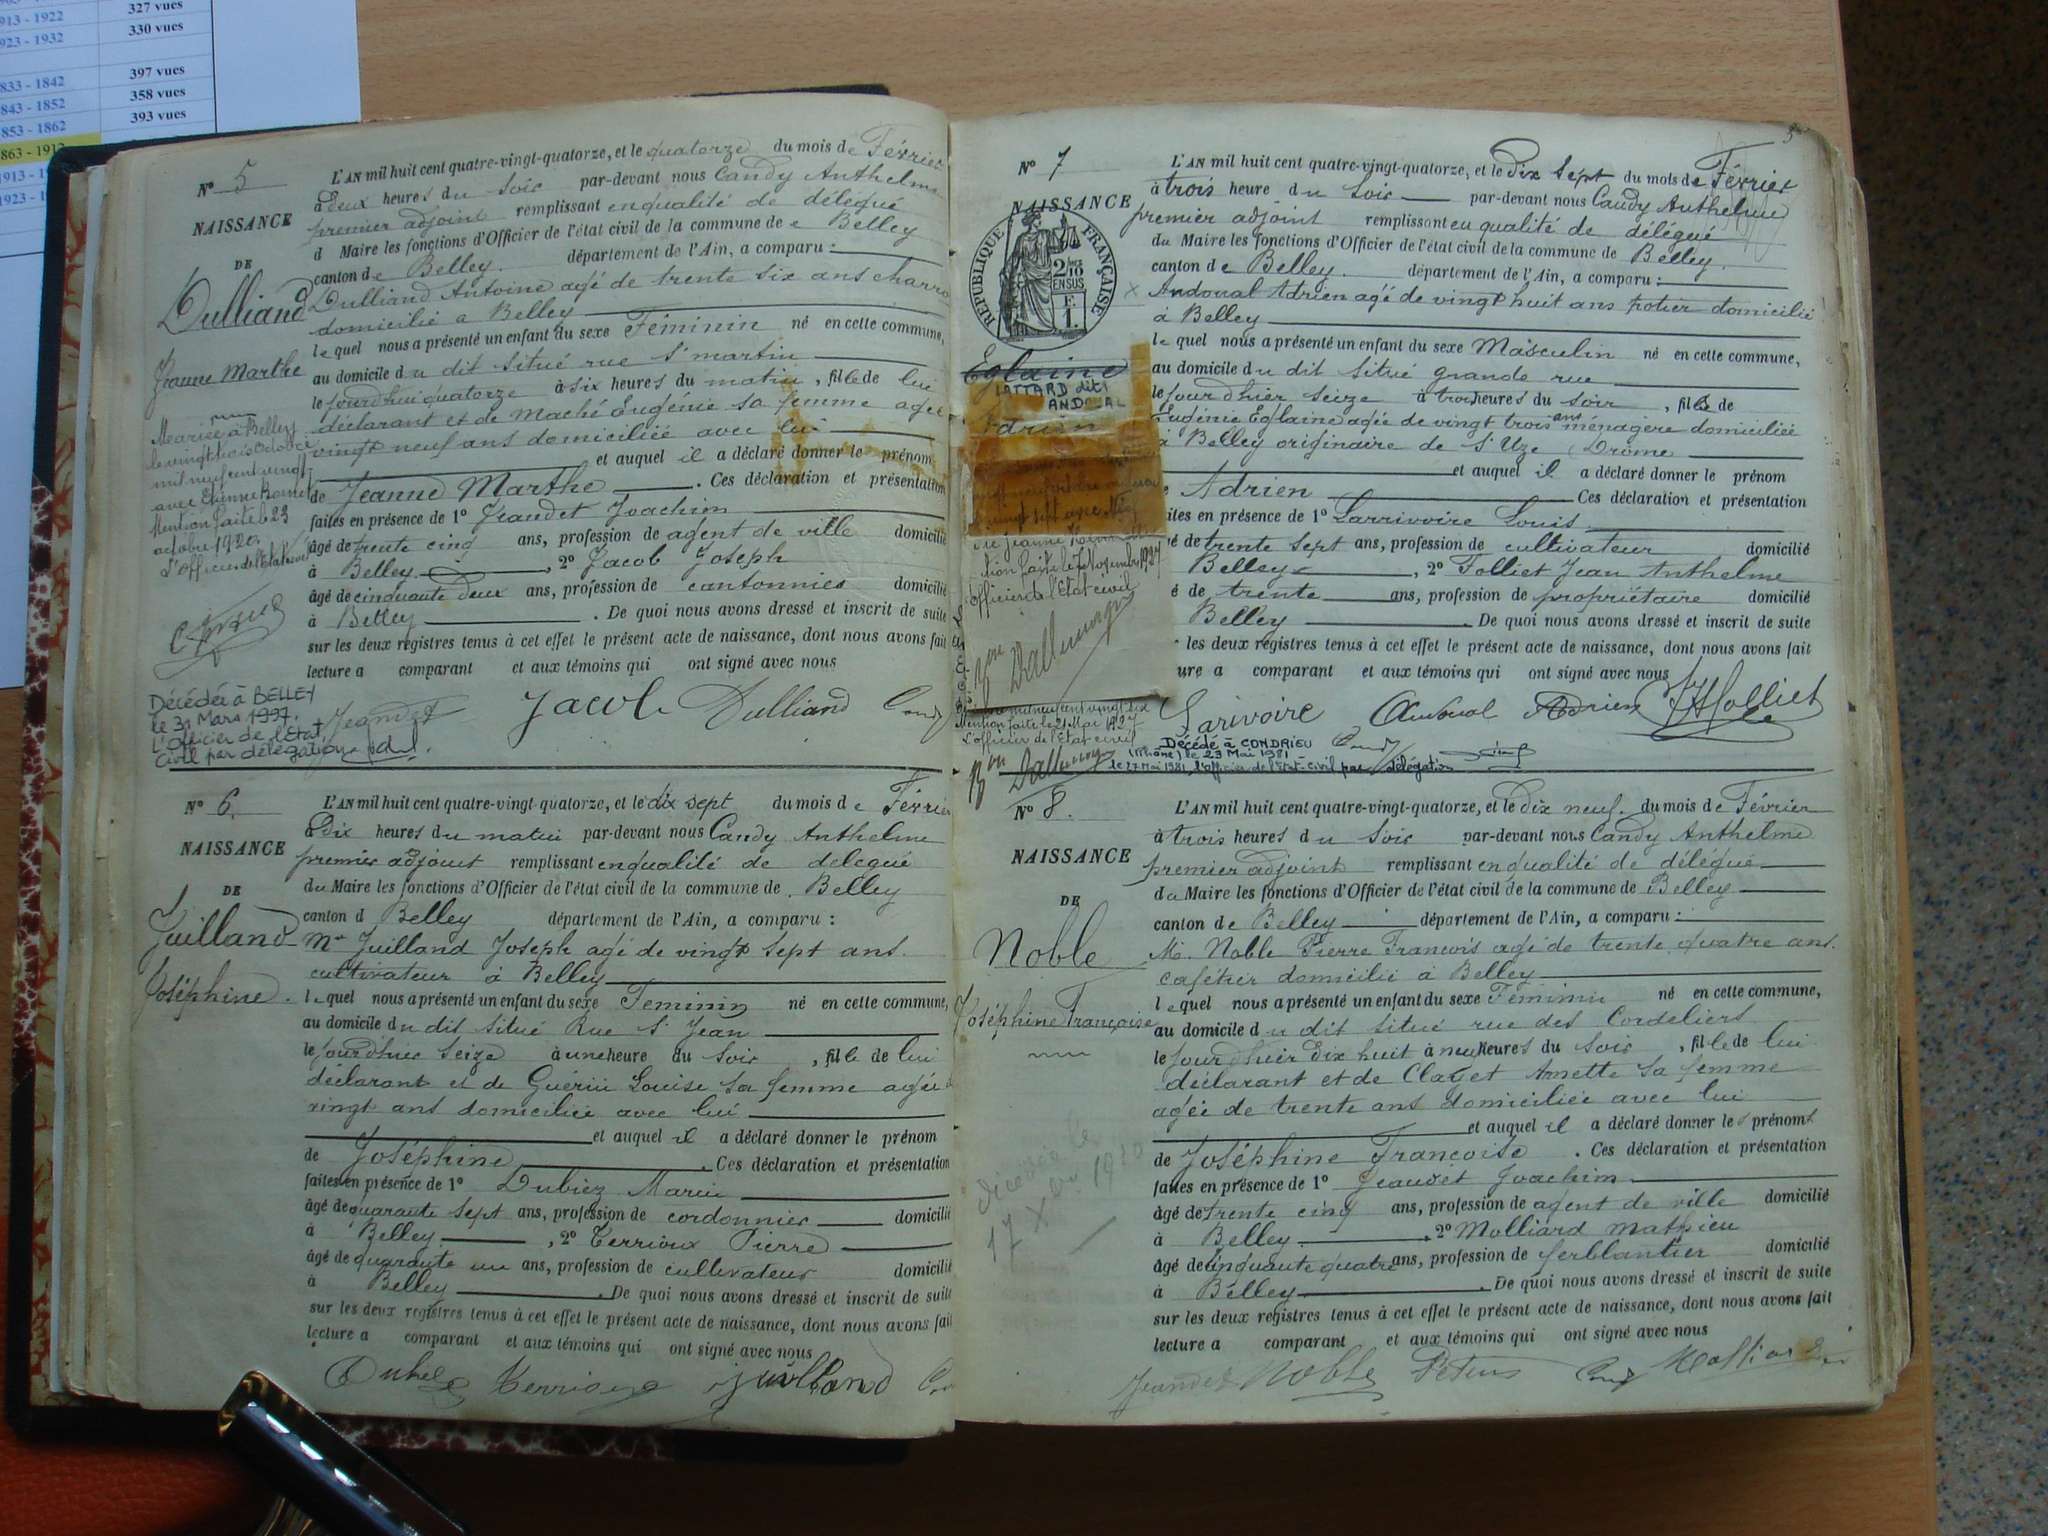 913 - 1922 327 vues
923 - 1932 330 vues
833 - 1842 397 vues
843 - 1852 358 vues
853 - 1862 393 vues
863 - 1912
1913 - 19
1923 - 1
N° 5
NAISSANCE
DE
Dulliand
Jeanne Marthe
Mariée à Belley
le vingt trois Octobre
mil neuf cent vingt
avec Etienne
Mention faite le 23
octobre 1920
L'Officier de l'Etat civil
L'AN mil huit cent quatre-vingt-quatorze, et le quatorze du mois de Février
à deux heures du soir par-devant nous Candy Anthelme
premier adjoint remplissant en qualité de délégué
d Maire les fonctions d'Officier de l'état civil de la commune de Belley
canton de Belley. département de l'Ain, a comparu :
Dulliand Antoine agé de trente six ans charro
domicilié a Belley
lequel nous a présenté un enfant du sexe Féminin né en cette commune,
au domicile du dit situé rue St martin
le jourdhui quatorze à six heures du matin, fille de lui
déclarant et de Maché Eugénie sa femme agée
vingt neuf ans domiciliée avec lui
et auquel il a déclaré donner le prénom
de Jeanne Marthe . Ces déclaration et présentation
faites en présence de 1° Jeandet Joachim
âgé de trente cinq ans, profession de agent de ville domicilié
à Belley. , 2° Jacob Joseph
âgé de cinquante deux ans, profession de cantonnier domicilié
à Belley . De quoi nous avons dressé et inscrit de suite
sur les deux registres tenus à cet effet le présent acte de naissance, dont nous avons fait
lecture a comparant et aux témoins qui ont signé avec nous
Jeandet Jacob Dulliand Candy
Décédée à BELLEY
le 31 Mars 1997.
L'Officier de l'Etat
Civil par délégation
N° 6.
NAISSANCE
DE
Juilland
Joséphine.
L'AN mil huit cent quatre-vingt-quatorze, et le dix sept du mois de Février
à Dix heures du matin par-devant nous Candy Anthelme
premier adjoint remplissant en qualité de délégué
du Maire les fonctions d'Officier de l'état civil de la commune de Belley
canton d Belley département de l'Ain, a comparu :
Mr Juilland Joseph agé de vingt sept ans
cultivateur à Belley
lequel nous a présenté un enfant du sexe Feminin né en cette commune,
au domicile du dit situé Rue St Jean
le jourdhier seize à une heure du soir , fille de lui
déclarant et de Guérin Louise sa femme agée de
vingt ans domiciliée avec lui
et auquel il a déclaré donner le prénom
de Joséphine . Ces déclaration et présentation
faites en présence de 1° Dubiez Marin
âgé de quarante sept ans, profession de cordonnier domicilié
à Belley. , 2° Terrioux Pierre
âgé de quarante un ans, profession de cultivateur domicilié
à Belley . De quoi nous avons dressé et inscrit de suite
sur les deux registres tenus à cet effet le présent acte de naissance, dont nous avons fait
lecture a comparant et aux témoins qui ont signé avec nous
juilland
5
N° 7
NAISSANCE
RÉPUBLIQUE FRANÇAISE
2/10 EN SUS
F. 1.
Eglaine
LATTARD dit
ANDOUAL
Adrien
tion faite le 7 Novembre 1927
officier de l'Etat civil
Dallemagne
mil neuf cent vingt six
Mention faite le 21 Mai 1927
L'officier de l'Etat civil
Dallemagne
L'AN mil huit cent quatre-vingt-quatorze, et le Dix sept du mois de Février
à trois heure du soir par-devant nous Candy Anthelme
premier adjoint remplissant en qualité de délégué
du Maire les fonctions d'Officier de l'état civil de la commune de Belley.
canton de Belley. département de l'Ain, a comparu :
Andoual Adrien agé de vingt huit ans potier domicilié
à Belley
lequel nous a présenté un enfant du sexe Masculin né en cette commune,
au domicile du dit situé grande rue
le jourdhier seize à trois heures du soir , fils de
Eugénie Eglaine agée de vingt trois ans ménagère domiciliée
à Belley originaire de St Uze (Drôme
et auquel il a déclaré donner le prénom
Adrien Ces déclaration et présentation
faites en présence de 1° Larrivoire Louis
âgé de trente sept ans, profession de cultivateur domicilié
Belley , 2° Folliet Jean Anthelme
é de trente ans, profession de propriétaire domicilié
Belley . De quoi nous avons dressé et inscrit de suite
r les deux registres tenus à cet effet le présent acte de naissance, dont nous avons fait
ure a comparant et aux témoins qui ont signé avec nous
Larivoire Andoual Adrien Folliet
Candy
Décédé à CONDRIEU
(Rhône) le 23 Mai 1981
le 27 Mai 1981, L'officier de l'Etat-Civil par délégation
N° 8.
NAISSANCE
DE
Noble
Joséphine Françoise
décédée le
17 X 1910
L'AN mil huit cent quatre-vingt-quatorze, et le Dix neuf. du mois de Février
à trois heures du soir par-devant nous Candy Anthelme
premier adjoint remplissant en qualité de délégué
du Maire les fonctions d'Officier de l'état civil de la commune de Belley
canton de Belley département de l'Ain, a comparu :
M. Noble Pierre François agé de trente quatre ans.
cafétier domicilié à Belley
lequel nous a présenté un enfant du sexe Féminin né en cette commune,
au domicile du dit situé rue des Cordeliers
le jourdhier Dix huit à neuf heures du soir , fille de lui
déclarant et de Clayet Annette sa femme
agée de trente ans domiciliée avec lui
et auquel il a déclaré donner les prénoms
de Joséphine Françoise . Ces déclaration et présentation
faites en présence de 1° Jeandet Joachim
âgé de trente cinq ans, profession de agent de ville domicilié
à Belley. . 2° Molliard Mathieu
âgé de cinquante quatre ans, profession de ferblantier domicilié
à Belley . De quoi nous avons dressé et inscrit de suite
sur les deux registres tenus à cet effet le présent acte de naissance, dont nous avons fait
lecture a comparant et aux témoins qui ont signé avec nous
Jeandet Noble Candy Molliard